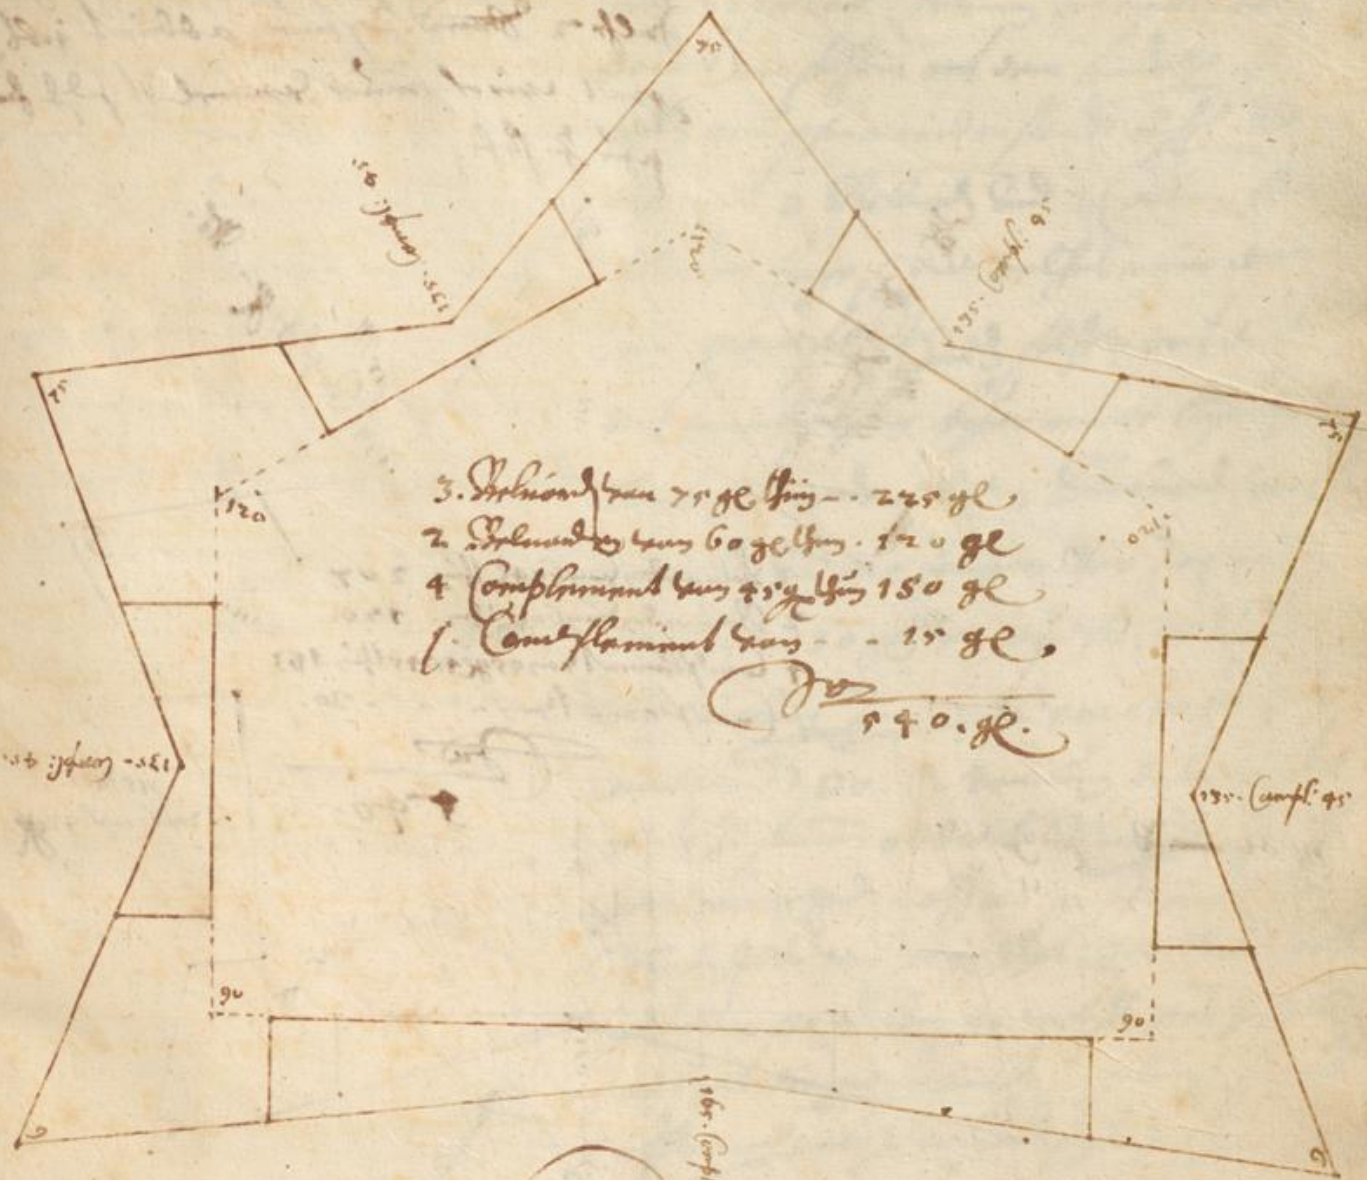 75
135. Compl: 45.
120
135. Compl. 45
75
75
120
120
3. Belward van 75 gl thun - . 225 gl.
2. Belwarden van 60 gl thun . 120 gl
4 Complement van 45 gl thun 180 gl
1. Complement van - - 15 gl.
540. gl.
135 - Compl: 45.
135. Compl: 45
90
90
165. Comp